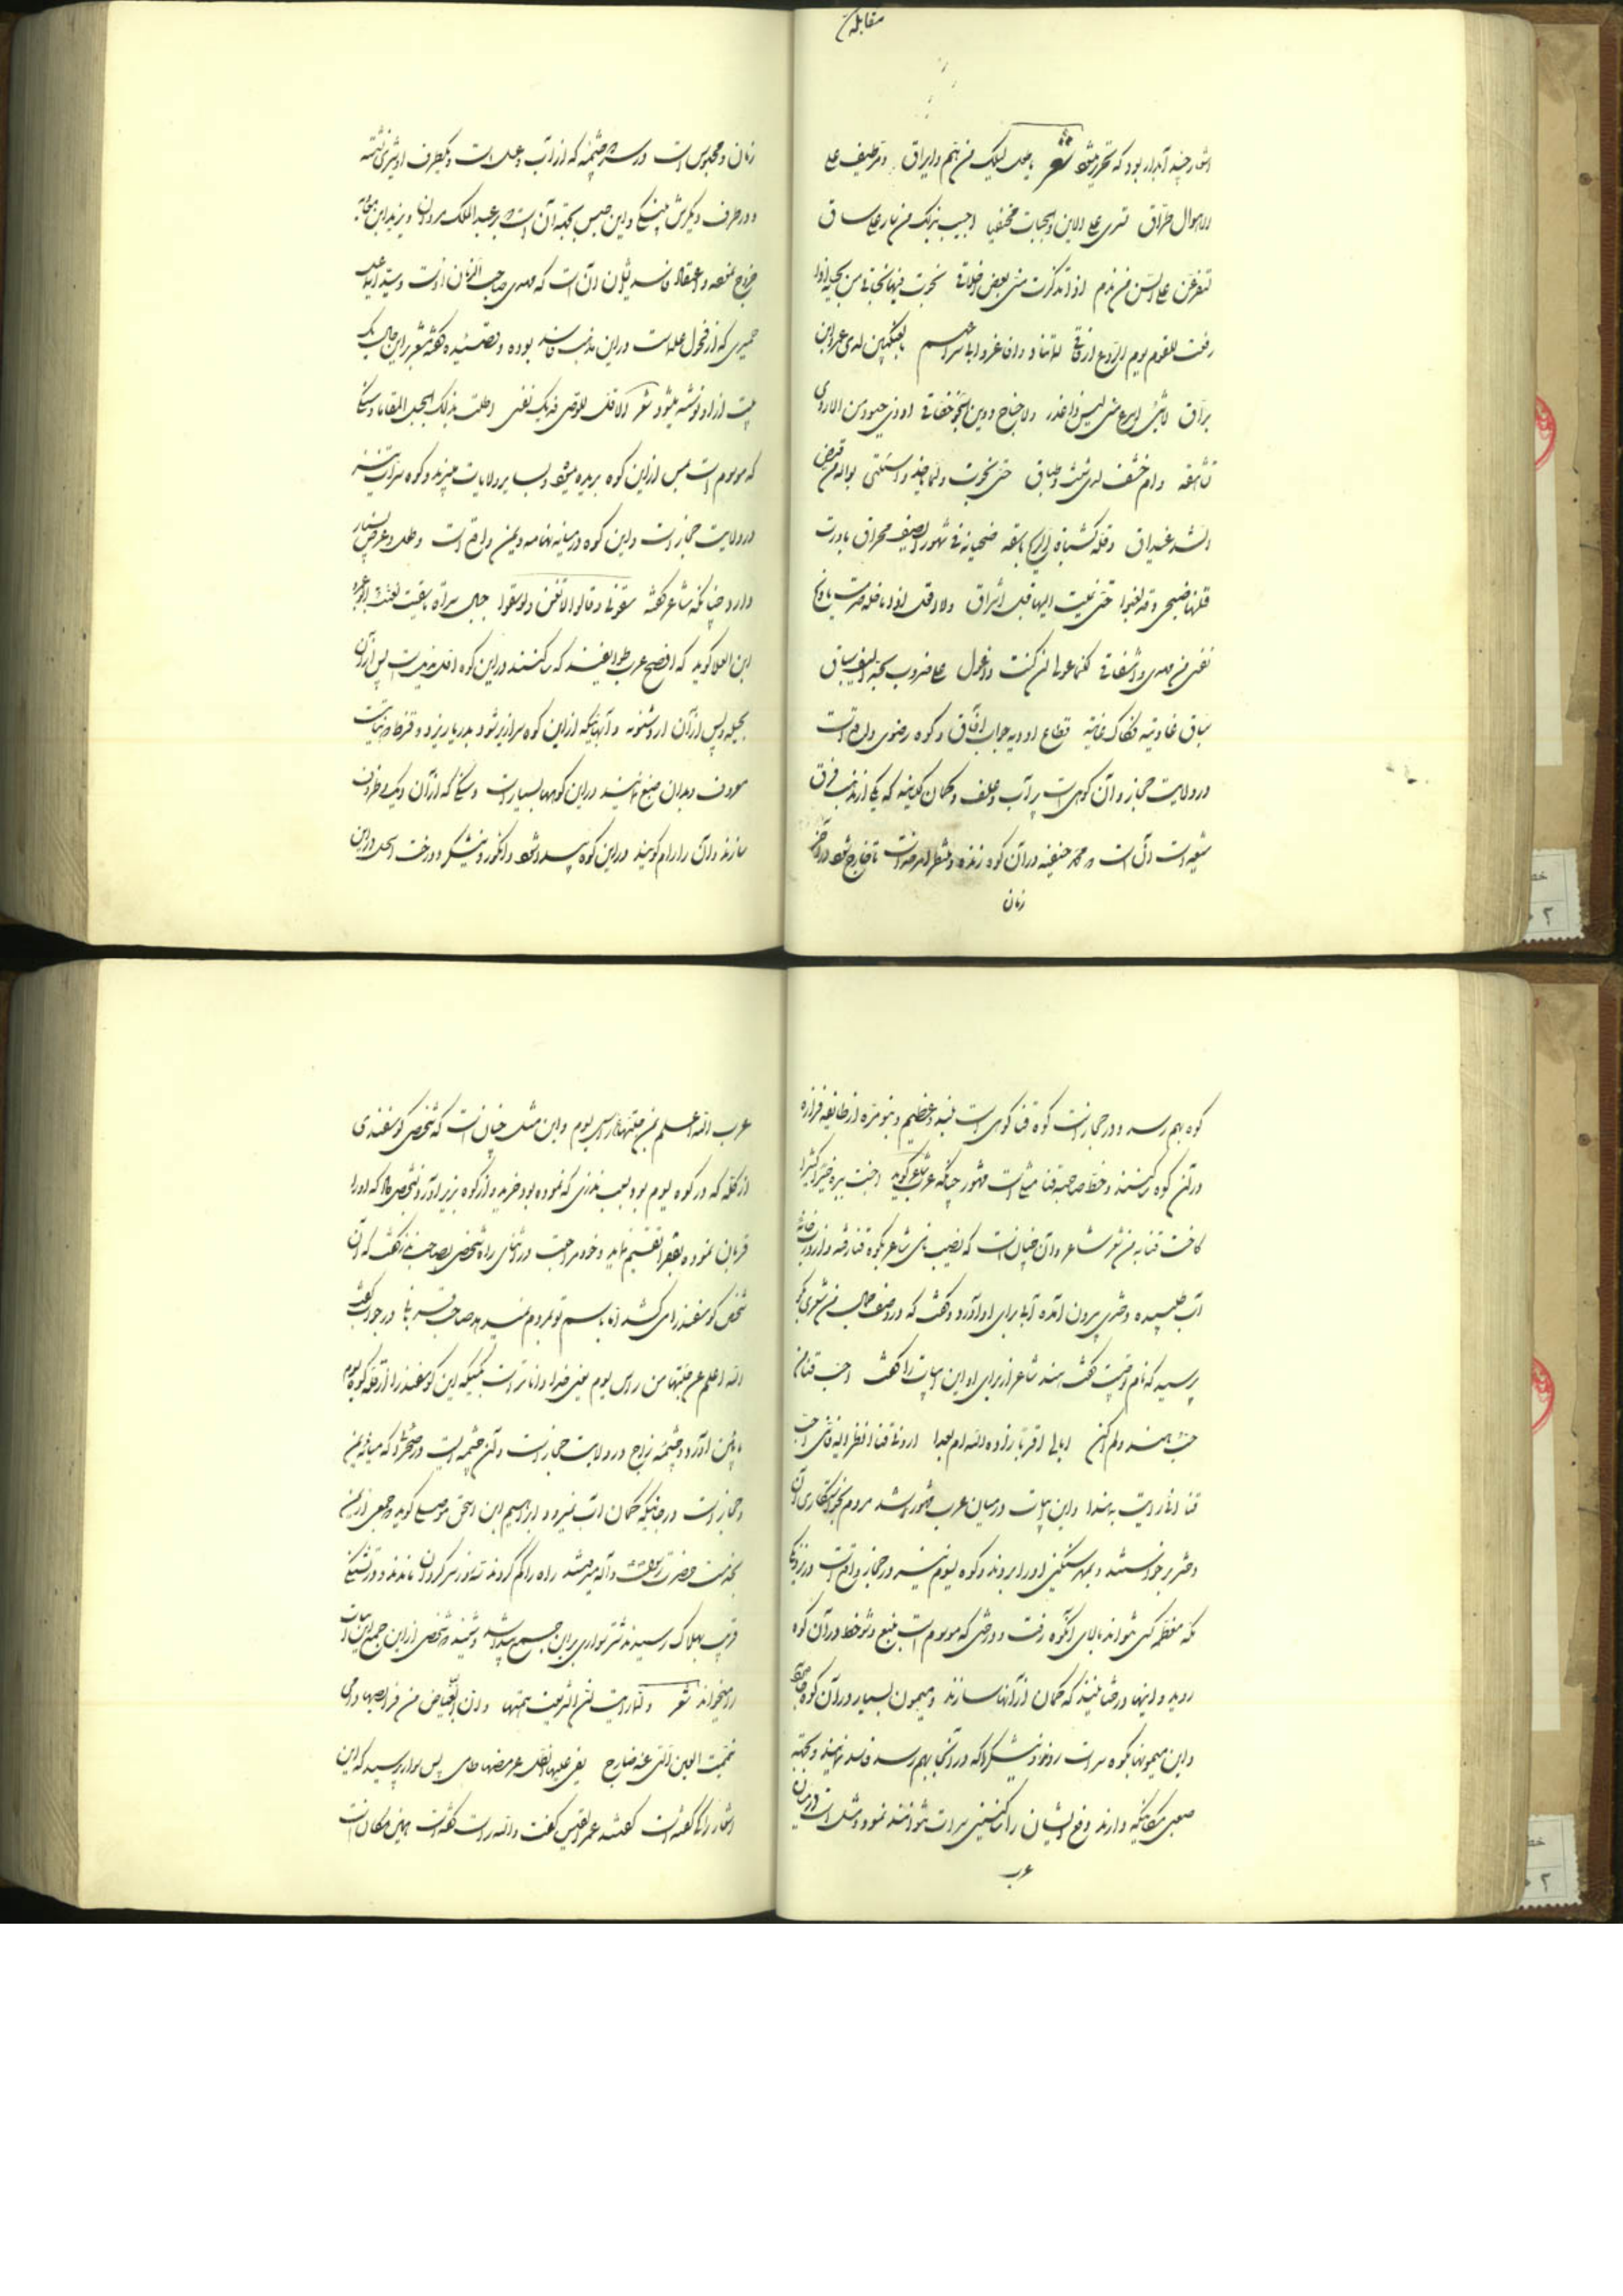 مقابله
اشعار چند آبدار بود که تحریر میشود شعر یا لیلک من هم وایراق و مر طیف علی
الاهوال طراق تسری علی الاین والحیات مختفیا احبب بذلک من سار علی ساق
لتقرعن علی السن من ندم اذا تذکرت منی بعض اخلاقی نجوت منها نجائی من بجیله اذا
رفعت للقوم یوم الروع ارفاقی لیلتنا وافا غروا بی سراعهم بالعیکتین لدی عمرو ابن
براق لا شئ اسرع منی لیس ذا عذر ولا جناح دوین الجو خفاق او ذی حیود من الاروی
شاهقه وام خشف لدی شث وطباق حتی نجوت ولما یاخذوا سلبی بواله من قبیض
الشد غیداق وقله کشباه الرمح باسقه ضحیانه فی شهور الصیف محراق بادرت
قلتها صحبی وقد لغبوا حتی نمیت الیها قبل اشراق ولا اقل اذا ما خله صرمت یا ویح
نفسی من وجدی واشفاقی لکنما عولی ان کنت ذا عول علی ضروب بحد السیف سباق
سباق غادیه فکاک عانیه قطاع اودیه جواب آفاق و کوه رضوی واقع است
در ولایت حجاز و آن کوهی است پر آب و علف و گمان کویند که یکی از مذهب فرق
شیعه است آن است که محمد حنفیه در آن کوه زنده و منتظر امر خدا است تا خارج شود در آخر
زمان
زمان و محبوس است در سر چشمه که از آب و عسل است و یکطرف او شیری نشسته
و در طرف دیگرش پلنگی و این حبس بجهة آن است که بر عبد الملک مروان و یزید ابن معاویه
خروج نمود و اعتقاد فاسد ایشان آن است که مهدی صاحب الزمان اوست و سید اسماعیل
حمیری که از فحول علماست در این مذهب فاسد بوده و قصیده گفته شعر در این باب یک
بیت از او نوشته میشود شعر الا قل للوصی فدیک نفسی اطلت بذلک الجبل المقاما و سنگی
که موسوم است بمس از این کوه بریده میشود و بسایر ولایات میبرند و کوه سراة نیز
در ولایت حجاز است و این کوه در میانه تهامه و یمن واقع است و طول و عرض بسیار
دارد چنانکه شاعر گفته سقونی وقالوا لا تغن ولو سقوا جبال سراة ما سقیت لغنت ابو عمرو
ابن العلا کوید که افصح عرب طوایفند که ساکنند در این کوه اول هذیل است پس از آن
بجیله و پس از آن ازد شنوه و آبهائیکه از این کوه سرازیر شود بدریا ریزد و قرظ که نباتیست
معروف و بدان صبغ نمایند در این کوهها بسیار است و سنگی که از آن دیگ و ظروف
سازند و آن را برام گویند در این کوه پیدا شود و انگور و نیشکر و درخت اسحل در این
کوه بهم رسد و در حجاز است کوه قنا کوهی است بلند و عظیم و بنو مره از طایفه فزاره
در آن کوه ساکنند و خط صاحبة قنا مثلی است مشهور چنانکه عرب کوید
کافت قنا به من شعر شاعر و آن چنان است که نصیب نامی شاعر بکوه قنا رفته و از در خانه
آب طلبیده دختری بیرون آمده آب برای او آورد و گفت که در وصف جمال من شعری بگو
پرسید که نام تو چیست گفت هند شاعر از برای او این ابیات را گفت احب قنا من
حب هند ولم اکن ابالی اقربا زاده الله ام بعدا ارونی قنا انظر الیه فاننی احب
قنا انی رایت به هندا و این ابیات در میان عرب مشهور شد مردم بخواستگاری آن
دختر برخواستند و بمهر سنگینی او را بردند و کوه یسوم نیز در حجاز واقع است در نزدیکی
مکه معظمه کسی نتواند ببالای آنکوه رفت و درختی که موسوم است بنبع و شوحط در آن کوه
روید و اینها درختانیند که کمان از آنها سازند و میمون بسیار در آن کوه
و این میمونها بکوه سراة روند و نیشکرها که در آنجا بهم رسد فاسد نمایند و بجهة
صعبی مکانیکه دارند دفع ایشان را ساکنین سراة نتوانند نمود و مثل است در میان
عرب
عرب الله اعلم بمن حطها من راس یسوم و این مثل چنان است که شخصی گوسفندی
از گله که در کوه یسوم بود بسبب نذری که نموده بود خرید و از کوه بزیر آورد و بشخصی داد که او را
قربان نموده بفقرا تقسیم نماید و خود مراجعت در اثنای راه شخصی بصاحب نذر گفت که آن
شخص گوسفند را می کشد اما باسم تو بمردم نمیدهد صاحب قربانی در جواب گفت
الله اعلم من حطها من راس یسوم یعنی خدا داناتر است بکسیکه این گوسفند را از قله کوه یسوم
پائین آورد و چشمه ضارج در ولایت حجاز است و آن چشمه ایست در صحرا که میانه یمن
و حجاز است در جائیکه گمان آب نمیرود ابراهیم ابن اسحق موصلی کوید که جمعی از یمن
بخدمت حضرت رسول صلی الله علیه وآله میرفتند راه را گم کردند سه روز سرگردان بماندند و از تشنگی
قریب بهلاک رسیدند شتر سواری بر این جمع پیدا شد و شنید که شخصی از این جمع این ابیات
را میخواند شعر ولما رایت ان الشریعة همها وان البیاض من فرایصها دامی
تیممت العین التی عند ضارج یفئ علیها الظل عرمضها طامی پس سوار پرسید که این
اشعار را که گفته است گفتند امرء القیس گفت والله راست گفته است همین مکان است